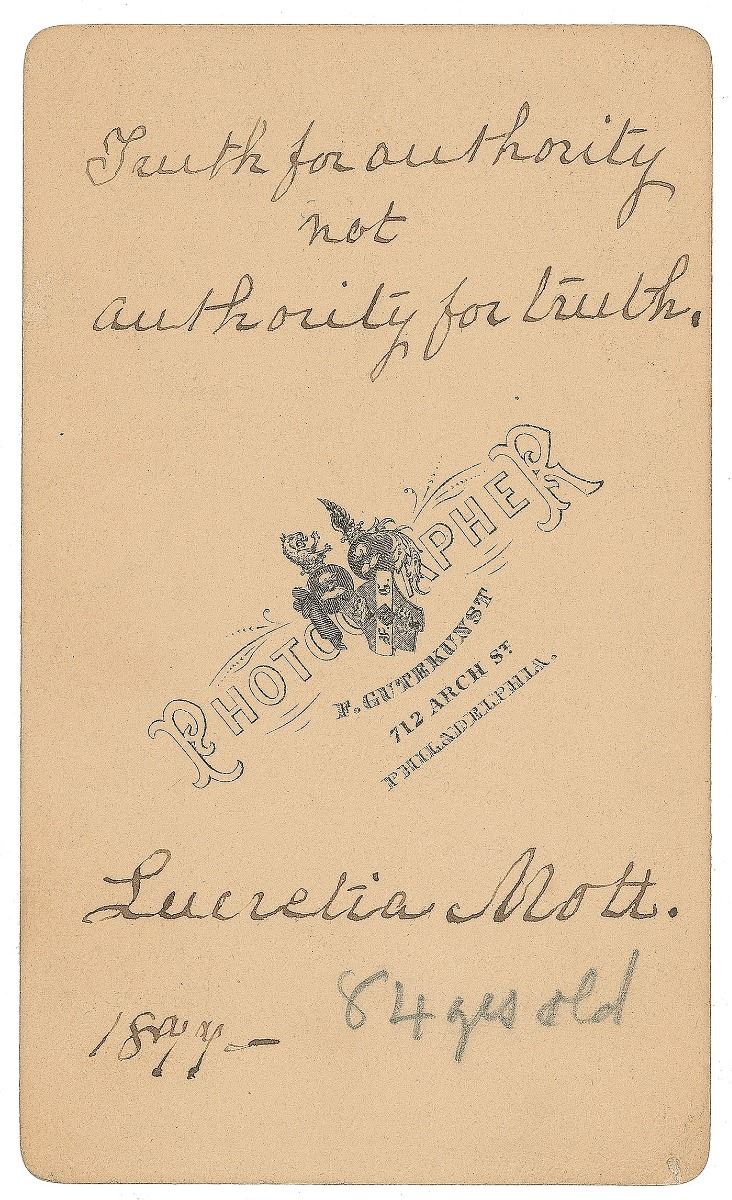 Truth for authority
not
authority for truth.
PHOTOGRAPHER
F. G.
F. GUTEKUNST
712 ARCH ST
PHILADELPHIA.
Lucretia Mott.
1877-
84 yrs old